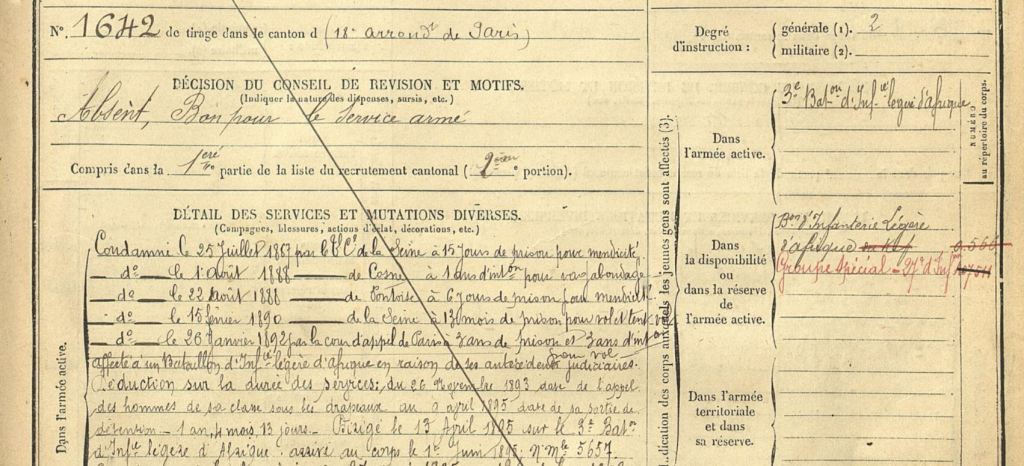 N°. 1642 de tirage dans le canton d (18e arrondt de Paris)
DÉCISION DU CONSEIL DE REVISION ET MOTIFS.
(Indiquer la nature des dispenses, sursis, etc.)
Absent, Bon pour le service armé
Compris dans la 1ère partie de la liste du recrutement cantonal (2ème portion).
DÉTAIL DES SERVICES ET MUTATIONS DIVERSES.
(Campagnes, blessures, actions d'éclat, décorations, etc.)
Condamné le 25 Juillet 1887 par le tal Cel de la Seine à 15 Jours de prison pour mendicité.
— do — le 1er Août 1888 — de Cosne à 1 ans d'inton pour vagabondage
— do — le 22 Août 1888 — de Pontoise à 6 Jours de prison pour mendicité
— do — le 15 février 1890 — de la Seine à 13 mois de prison pour vol et tent
— do — le 26 Janvier 1892 par la cour d'appel de Paris à 3 ans de prison et 5 ans d'int
pour vol
affecté à un Bataillon d'Infie légère d'Afrique en raison de ses antécédents judiciaires.
Déduction sur la durée des services: du 26 Novembre 1893 date de l'appel
des hommes de sa classe sous les drapeaux au 9 avril 1895 date de sa sortie de
détention - 1 an, 4 mois, 13 jours. - Dirigé le 13 Avril 1895 sur le 3e Baton
d'Infie légère d'Afrique. arrivé au corps le 1er Juin 1895 n° mle 5657.
Dans l'armée active.
Degré d'instruction :
générale (1). 2
militaire (2).
3e Baton d'Infie légère d'Afrique
NUMÉRO au répertoire du corps.
Dans l'armée active.
Dans la disponibilité ou dans la réserve de l'armée active.
Bon d'Infanterie Légère
d'Afrique
Groupe spécial - 37e d'Infie
Dans l'armée territoriale et dans sa réserve.
dication des corps auxquels les jeunes gens sont affectés (3).